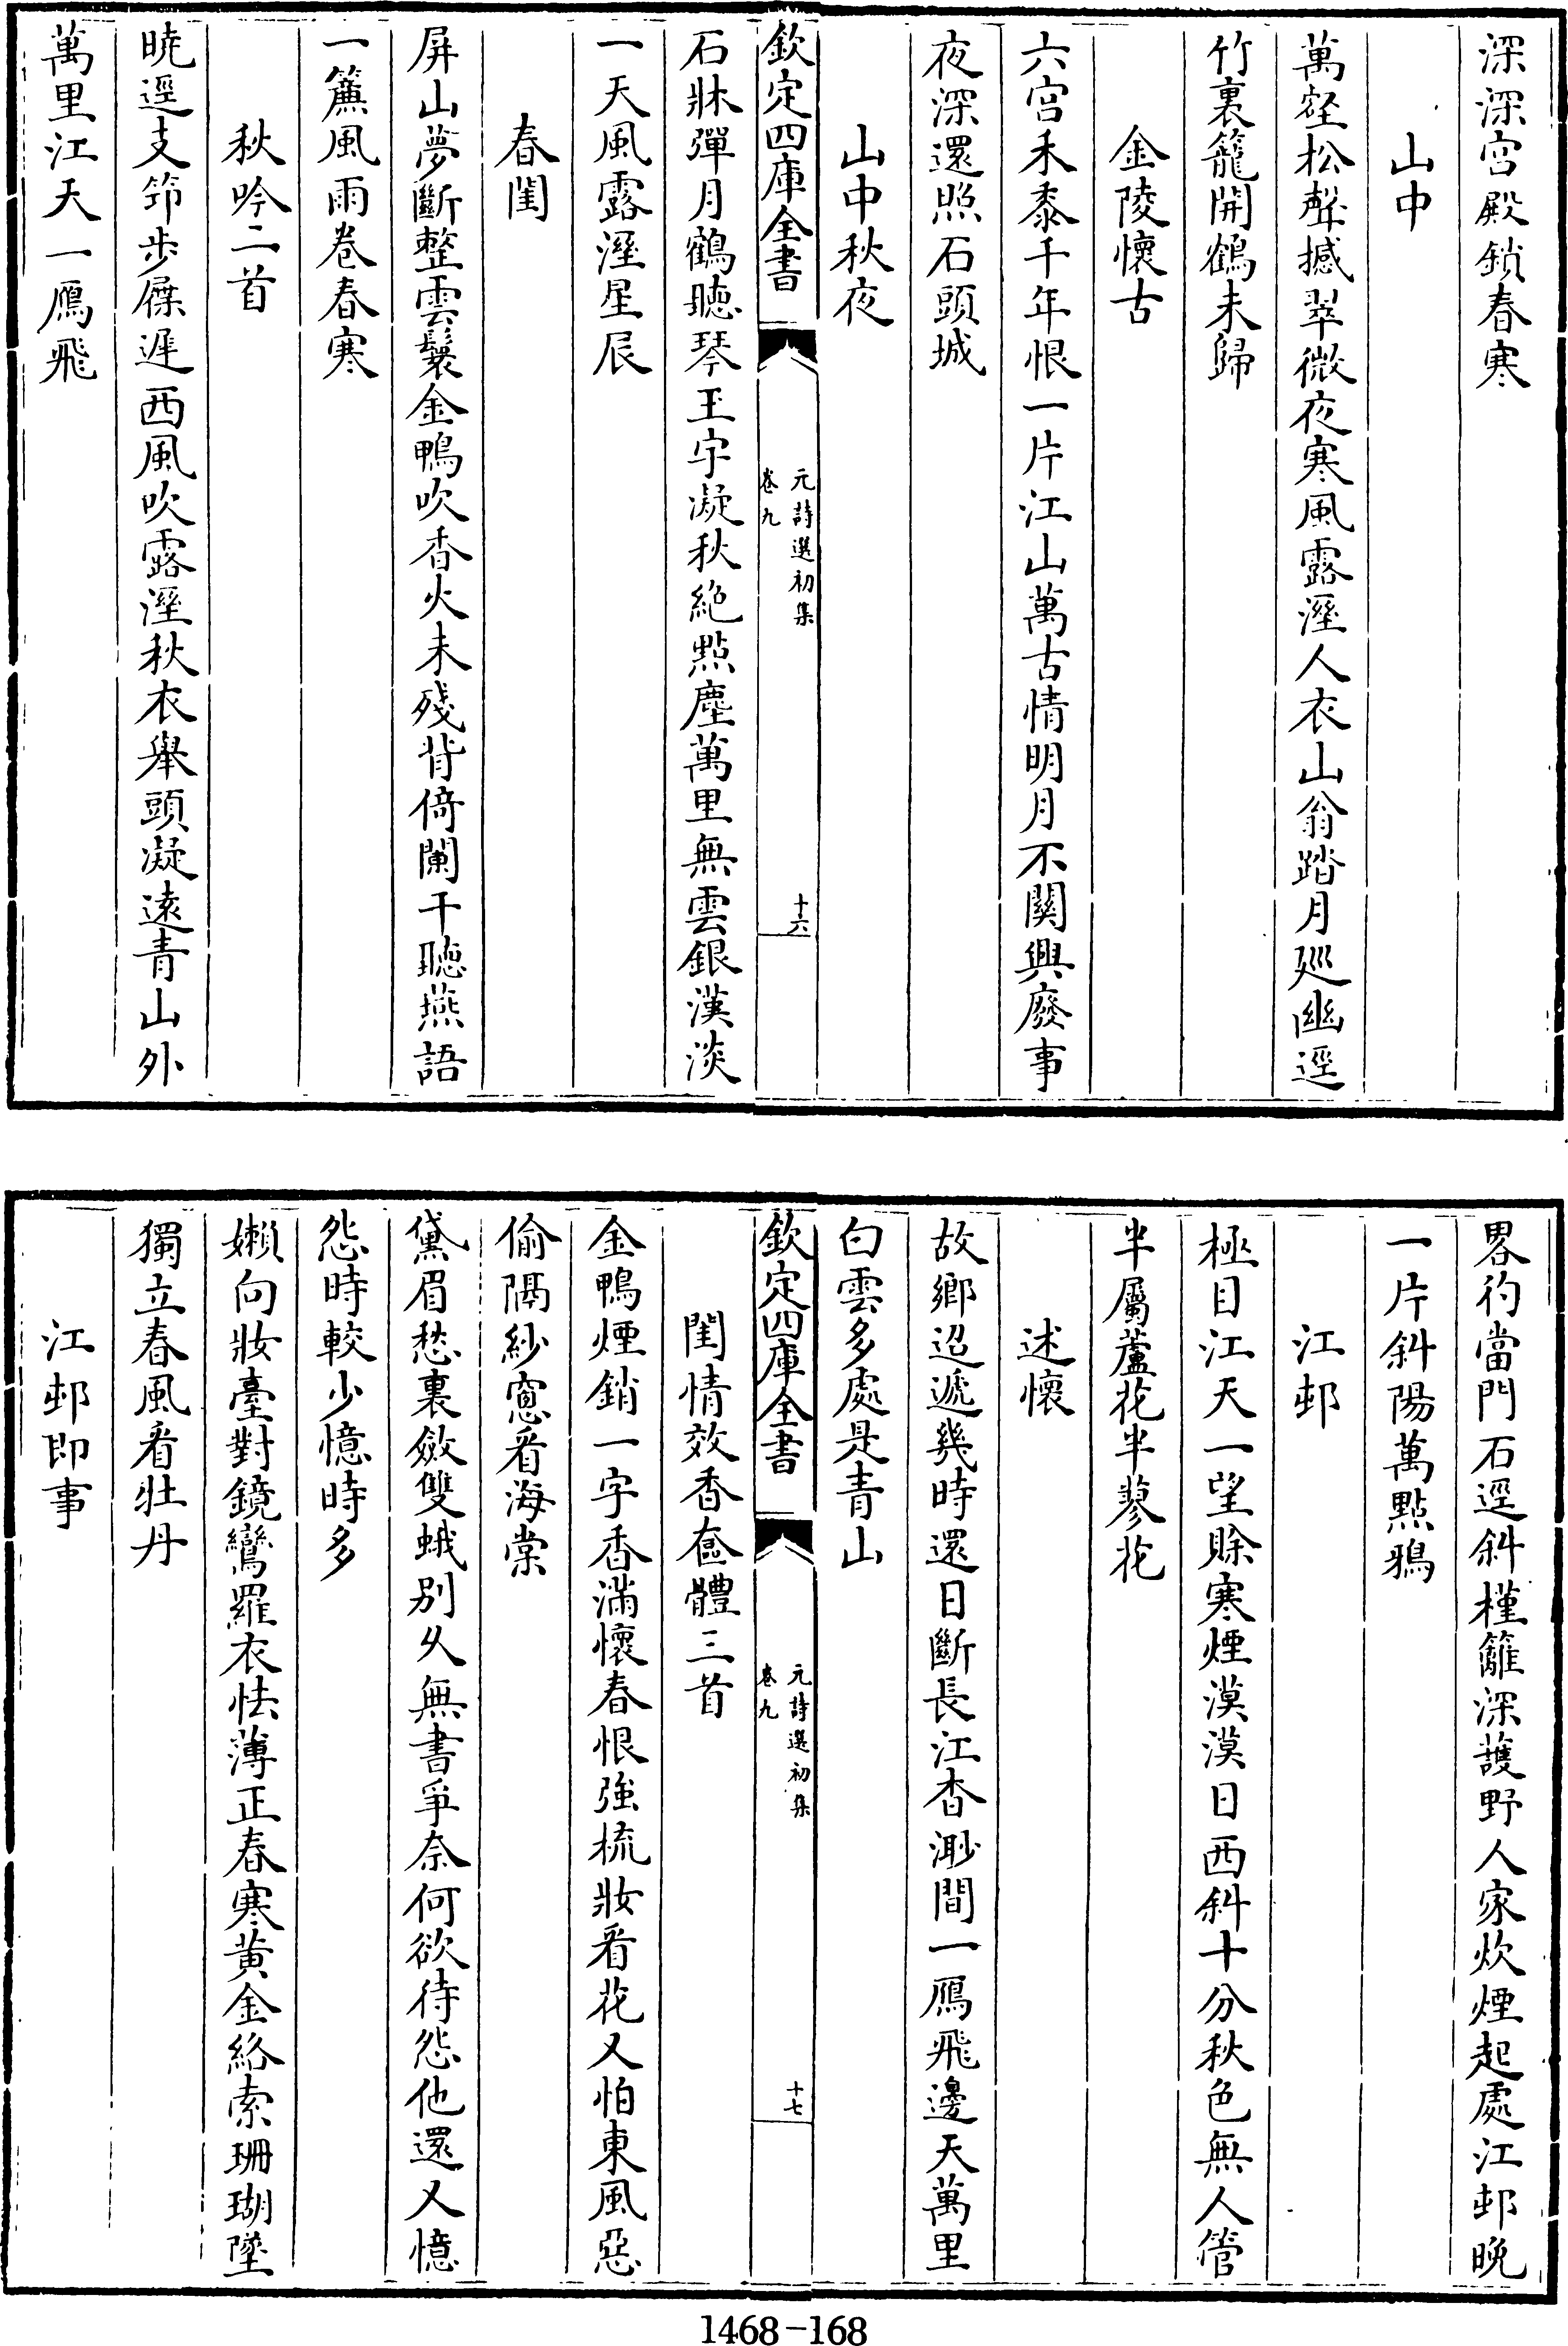 深深宫殿鎖春寒
山中
萬壑松聲撼翠微夜寒風露溼人衣山翁踏月廵幽逕
竹裏籠開鶴未歸
金陵懷古
六宫禾黍千年恨一片江山萬古情明月不關興廢事
夜深還照石頭城
山中秋夜
欽定四庫全書
元詩選初集
卷九
十六
石牀彈月鶴聽琴玉宇凝秋絶點塵萬里無雲銀漢淡
一天風露溼星辰
春閨
屏山夢斷整雲鬟金鴨吹香火未殘背倚闌干聽燕語
一簾風雨卷春寒
秋吟二首
曉逕支笻步屧遲西風吹露溼秋衣舉頭凝遠青山外
萬里江天一鴈飛
畧彴當門石逕斜槿籬深護野人家炊煙起處江邨晚
一片斜陽萬點鴉
江邨
極目江天一望賒寒煙漠漠日西斜十分秋色無人管
半屬蘆花半蓼花
述懷
故鄉迢遞幾時還日斷長江杳渺間一鴈飛邊天萬里
白雲多處是青山
欽定四庫全書
元詩選初集
卷九
十七
閨情效香奩體三首
金鴨煙銷一字香滿懷春恨強梳妝看花又怕東風惡
偷隔紗窻看海棠
黛眉愁裏斂雙蛾别久無書爭奈何欲待怨他還又憶
怨時較少憶時多
嬾向妝臺對鏡鸞羅衣怯薄正春寒黄金絡索珊瑚墜
獨立春風看牡丹
江邨即事
1468-168